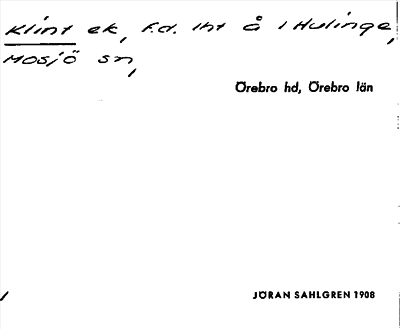 Klint ek, f.d. lht å i Hulinge,
Mosjö sn,
Örebro hd, Örebro län
JÖRAN SAHLGREN 1908